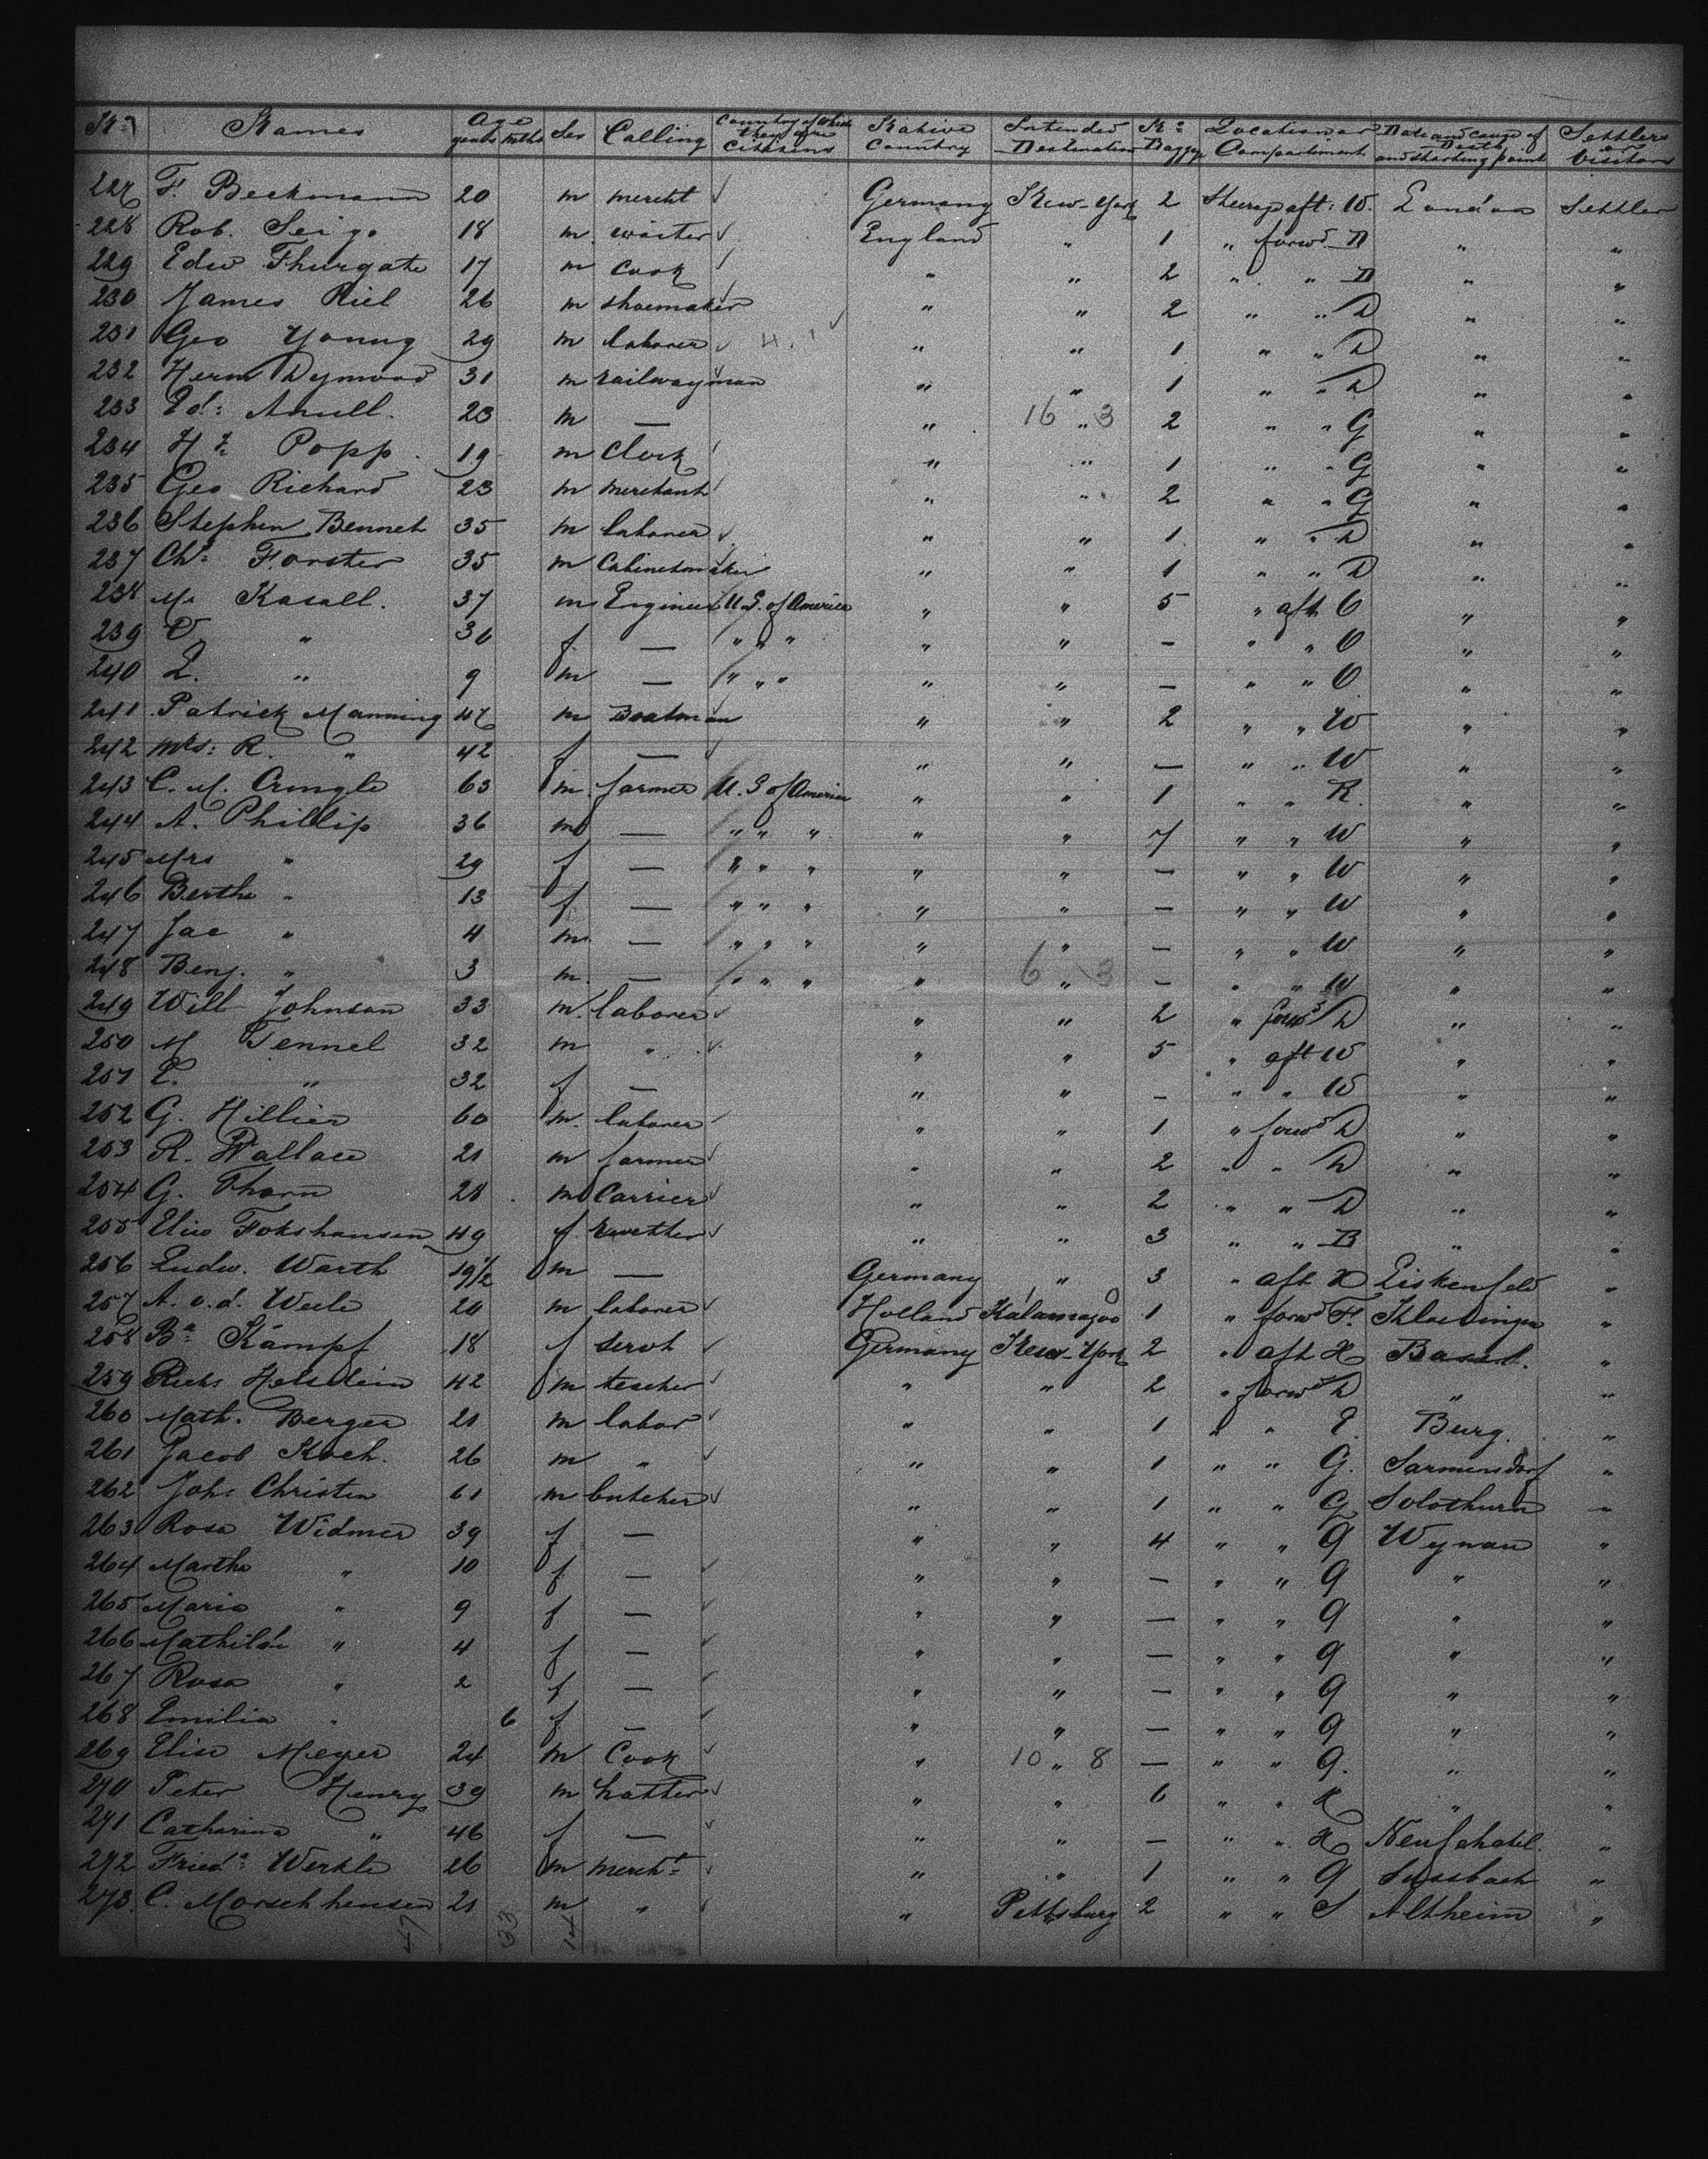 No Names Age years mths Sex Calling Country of which they are Citizens Native Country Intended Destination No Baggage Location or Compartment Date and cause of Death and starting point Settlers or Visitors
227 F. Beckmann 20 m mercht Germany New-York 2 Steerage aft: W. London Settler
228 Rob. Seigo 18 m waiter England " 1 " forwd D " "
229 Edw Thurgate 17 m cook " " 2 " " D " "
230 James Riel 26 m shoemaker " " 2 " " D " "
231 Geo Young 29 m laborer " " 1 " " D " "
232 Herm Dymond 31 m railwayman " " 1 " " D " "
233 Ed: 23 m — " 16 " 3 2 " " G " "
234 Hy: Popp 19 m Clerk " " 1 " " G " "
235 Geo Richard 23 m merchant " " 2 " " G " "
236 Stephen Bennet 35 m laborer " " 1 " " D " "
237 Chs Forster 35 m Cabinetmaker " " 1 " " D " "
238 M. Kasall. 37 m Engineer U.S. of America " " 5 " aft O " "
239 " 36 f — " " " " " — " " O " "
240 L. " 9 m — " " " " " — " " O " "
241 Patrick Manning 47 m Boatman " " 2 " " W " "
242 Mrs: R. " 42 f — " " — " " W " "
243 C. M. Cringle 63 m. farmer U.S of America " " 1 " " R. " "
244 A. Phillip 36 m — " " " " " 7 " " W " "
245 Mrs " 29 f — " " " " " — " " W " "
246 Bertha " 13 f — " " " " " — " " W " "
247 Jac " 4 m. — " " " " " — " " W " "
248 Benj. " 3 m. — " " " " 6 " 3 — " " W " "
249 Will Johnson 33 m. laborer " " 2 " forwd D " "
250 M Tennel 32 m " " " 5 " aft W " "
251 E. " 32 f — " " — " " W " "
252 G. Hillier 60 m. laborer " " 1 " forwd D " "
253 R. Wallace 21 m farmer " " 2 " " D " "
254 G. Thorn 28 m Carrier " " 2 " " D " "
255 Elise Fokshansen 49 f " " 3 " " B " "
256 Ludw. Warth 19 1/2 m — Germany " 3 " aft H "
257 A. v. d. Weele 20 m laborer Holland Kalamazoo 1 " forwd F. "
258 Ba Kämpf 18 f servt Germany New-York 2 " aft H "
259 42 m teacher " " 2 " forwd D " "
260 Math. Berger 21 m labor " " 1 " " E. Burg. "
261 Jacob Koch. 26 m " " " 1 " " G. Sarmensdorf "
262 Joh: Christen 61 m butcher " " 1 " " G Solothurn "
263 Rosa Widmer 39 f — " " 4 " " G Wynau "
264 Martha " 10 f — " " — " " G " "
265 Maria " 9 f — " " — " " G " "
266 Mathilde " 4 f — " " — " " G " "
267 Rosa " 2 f — " " — " " G " "
268 Emilia " 6 f — " " — " " G " "
269 Elise Meyer 24 m Cook " 10 " 8 — " " G. " "
270 Peter Henry 39 m hatter " " 6 " " H " "
271 Catharina " 46 f — " " — " " H Neufchatel. "
272 Fried: Werkle 26 m mercht " " 1 " " G Sussbach "
273. C. Morschhensen 21 m " " Pittsburg 2 " " S Altheim "
47 33 14